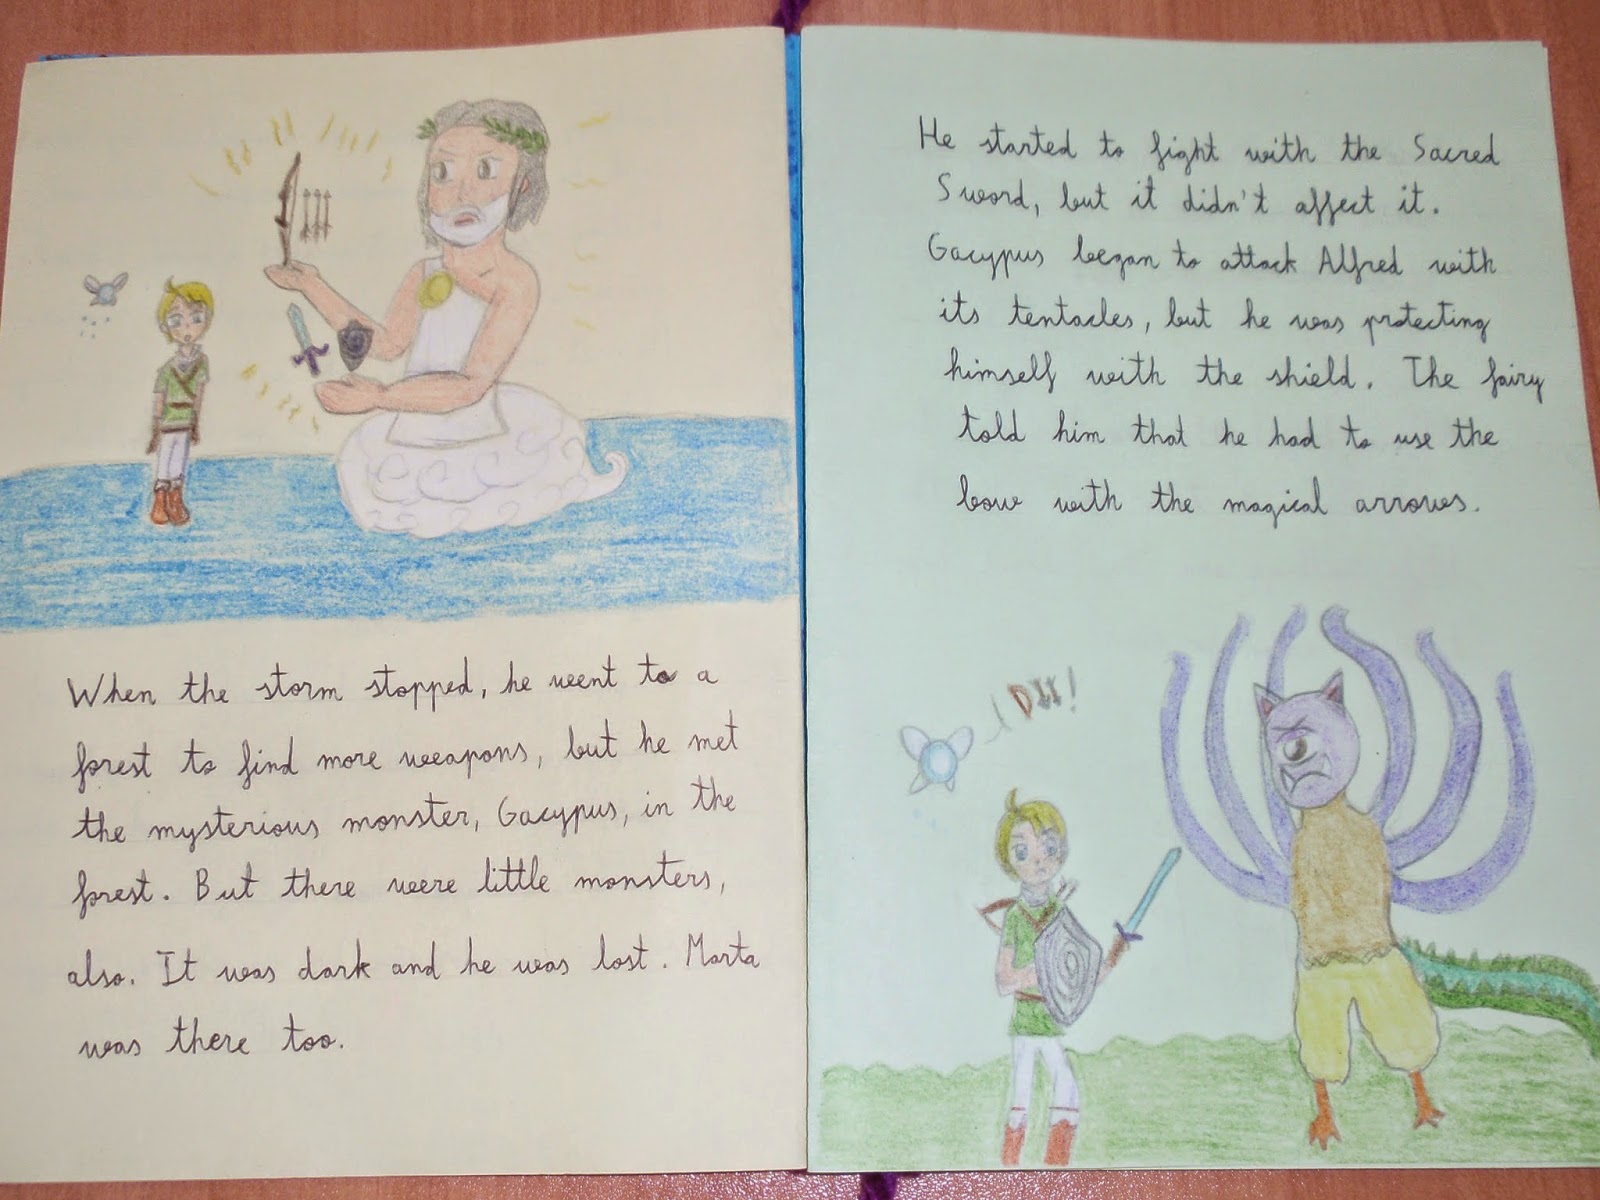 When the storm stopped, he went to a
forest to find more weapons, but he met
the mysterious monster, Gacypus, in the
forest. But there were little monsters,
also. It was dark and he was lost. Marta
was there too.
He started to fight with the Sacred
Sword, but it didn't affect it.
Gacypus began to attack Alfred with
its tentacles, but he was protecting
himself with the shield. The fairy
told him that he had to use the
bow with the magical arrows.